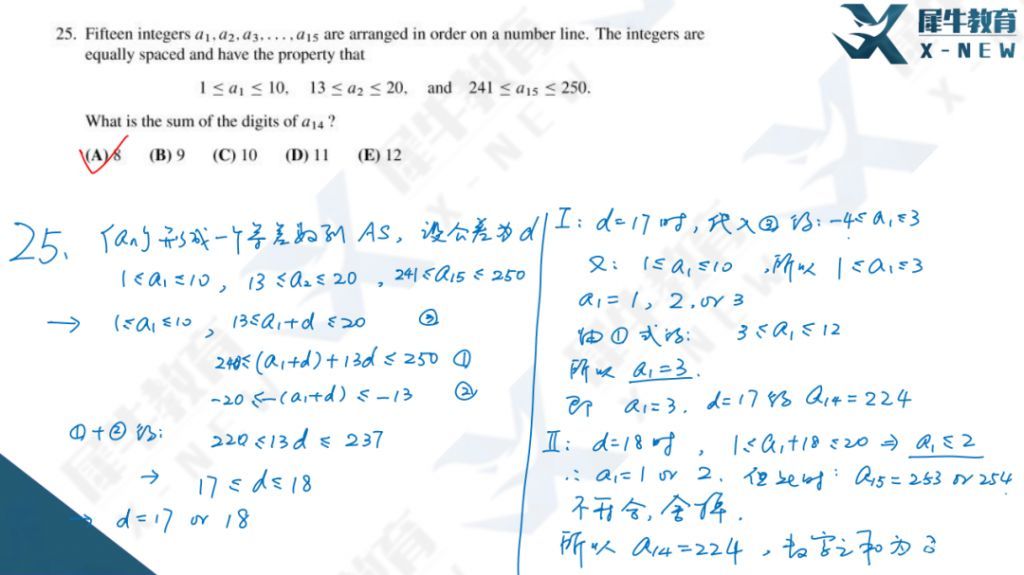 犀牛教育
X-NEW
25. Fifteen integers a₁, a₂, a₃, . . . , a₁₅ are arranged in order on a number line. The integers are
equally spaced and have the property that
1 ≤ a₁ ≤ 10, 13 ≤ a₂ ≤ 20, and 241 ≤ a₁₅ ≤ 250.
What is the sum of the digits of a₁₄ ?
(A) 8 (B) 9 (C) 10 (D) 11 (E) 12
25. {aₙ}形成一个等差数列 AS, 设公差为d
1≤a₁≤10, 13≤a₂≤20, 241≤a₁₅≤250
→ 1≤a₁≤10, 13≤a₁+d≤20 ③
240≤(a₁+d)+13d≤250 ①
-20≤-(a₁+d)≤-13 ②
①+②得:
220≤13d≤237
→ 17≤d≤18
→ d=17 or 18
I: d=17时, 代入③得: -4≤a₁≤3
又: 1≤a₁≤10, 所以 1≤a₁≤3
a₁=1, 2, or 3
由①式得: 3≤a₁≤12
所以 a₁=3.
即 a₁=3. d=17 得 a₁₄=224
II: d=18时, 1≤a₁+18≤20 ⇒ a₁≤2
∴ a₁=1 or 2. 但此时: a₁₅=253 or 254
不符合, 舍掉.
所以 a₁₄=224, 数字之和为8